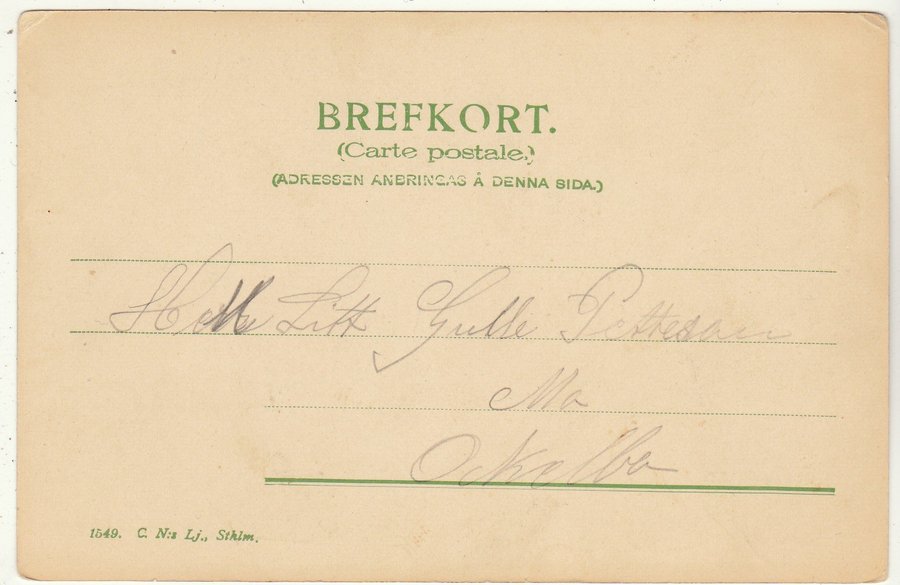 BREFKORT.
(Carte postale.)
(ADRESSEN ANBRINGAS Å DENNA SIDA.)
Litt Gulli Petterson
Mo
Ockelbo
1549. C. N:s Lj., Sthlm.